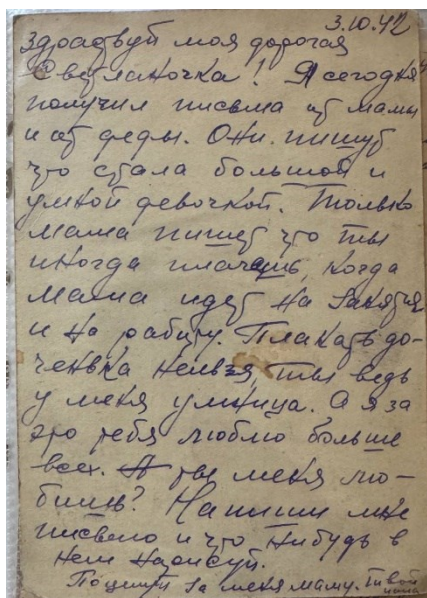 3.10.42
Здраствуй моя дорогая
Светланочка! Я сегодня
получил письма от мамы
и от деды. Они пишут
что стала большой и
умной девочкой. Только
мама пишет что ты
иногда плачешь, когда
мама идет на занятия
и на работу. Плакать до-
ченька нельзя, ты ведь
у меня умница. А я за
это тебя люблю больше
всех. А ты меня лю-
бишь? Напиши мне
письмо и что нибудь в
нем нарисуй.
Поцелуй за меня маму. Твой
папа